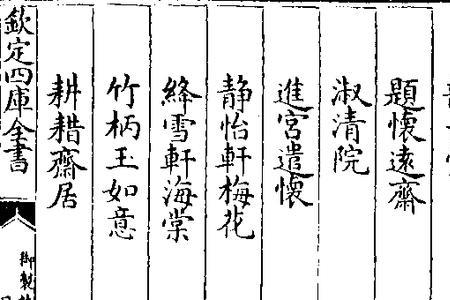 題懷遠齋
淑清院
進宮遣懷
静怡軒梅花
絳雪軒海棠
竹柄玉如意
耕耤齋居
欽定四庫全書
御製